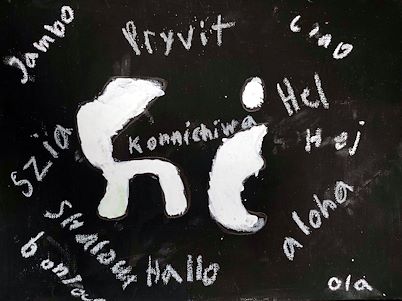 Jambo
Pryvit
Ciao
hi
Konnichiwa
Hel
Hej
Szia
Shalom
aloha
Hallo
ola